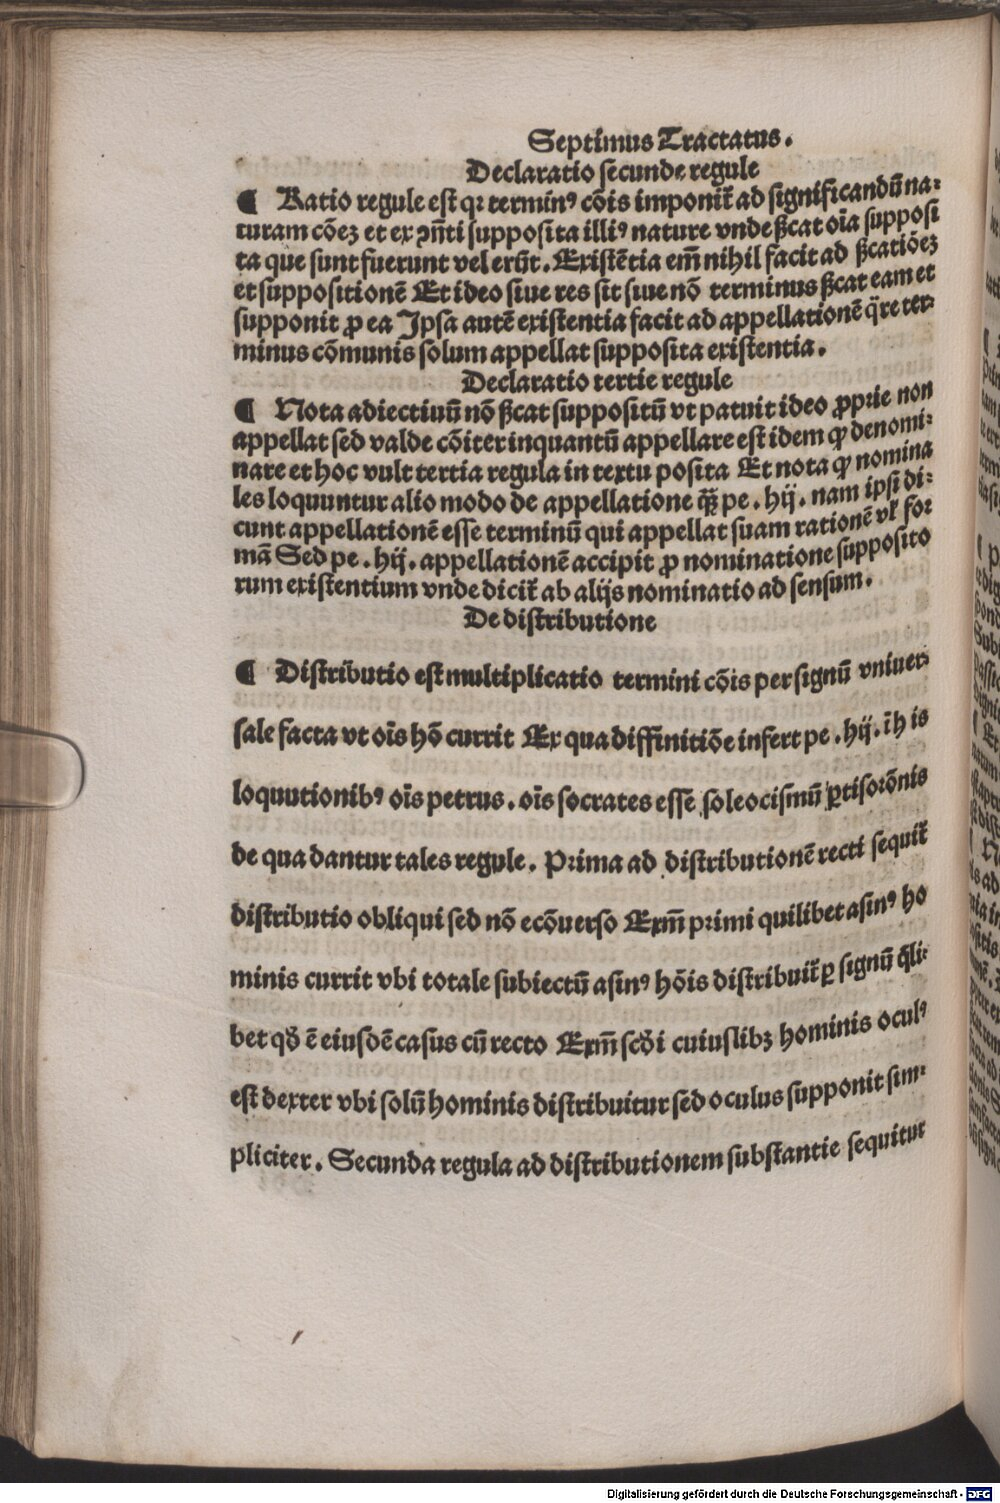 Septimus Tractatus.
Declaratio secunde regule
¶ Ratio regule est qꝛ terminꝰ cõis imponit̃ ad significandũ na⸗
turam cõeꝫ et ex ꝯñti supposita illiꝰ nature vnde ßcat oĩa supposi
ta que sunt fuerunt vel erũt. Existẽtia em̃ nihil facit ad ßcatiõeꝫ
et suppositionẽ Et ideo siue res sit siue nõ terminus ßcat eam et
supponit ꝓ ea Ipsa autẽ existentia facit ad appellationẽ q̃re ter⸗
minus cõmunis solum appellat supposita existentia.
Declaratio tertie regule
¶ Nota adiectiuũ nõ ßcat suppositũ vt patuit ideo ꝓpꝛie non
appellat sed valde cõiter inquantũ appellare est idem ꝙ denomi⸗
nare et hoc vult tertia regula in textu posita Et nota ꝙ nomina
les loquuntur alio modo de appellatione q̃ꝫ pe. hij. nam ipsi di⸗
cunt appellationẽ esse terminũ qui appellat suam rationẽ vl̃ foꝛ
mã Sed pe. hij. appellationẽ accipit ꝓ nominatione supposito
rum existentium vnde dicit̃ ab alijs nominatio ad sensum.
De distributione
¶ Distributio est multiplicatio termini cõis per signũ vniuer⸗
sale facta vt oĩs hõ currit Ex qua diffinitiõe infert pe. hij. ĩ h is
loquutionibꝰ oĩs petrus. oĩs socrates esse soleocismũ ꝑtisoꝛõnis
de qua dantur tales regule. Pꝛima ad distributionẽ recti sequit̃
distributio obliqui sed nõ ecõuerso Exm̃ pꝛimi quilibet asinꝰ ho
minis currit vbi totale subiectũ asinꝰ hõis distribuit̃ ꝑ signũ q̃li⸗
bet qð ẽ eiusdẽ casus cũ recto Exm̃ scði cuiuslibꝫ hominis oculꝰ
est dexter vbi solũ hominis distribuitur sed oculus supponit sim⸗
pliciter. Secunda regula ad distributionem substantie sequitur
Digitalisierung gefördert durch die Deutsche Forschungsgemeinschaft - DFG